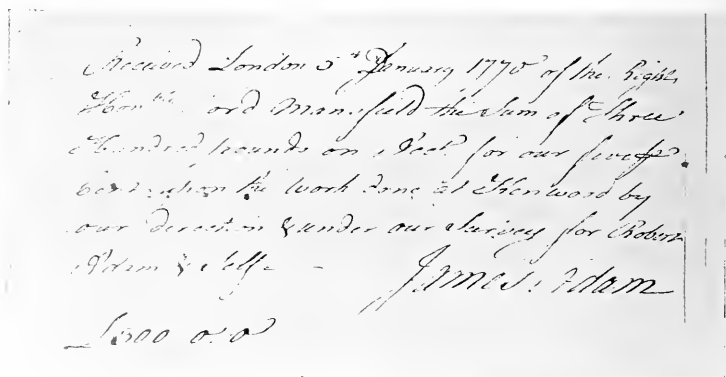 Received London 5th January 1770 of the Right
Honble Lord Mansfield the Sum of Three
Hundred pounds on Acct. for our five p
Cent upon the Work done at Kenwood by
our direction & under our Survey for Robert
Adam & Self
James Adam
£300 0:0